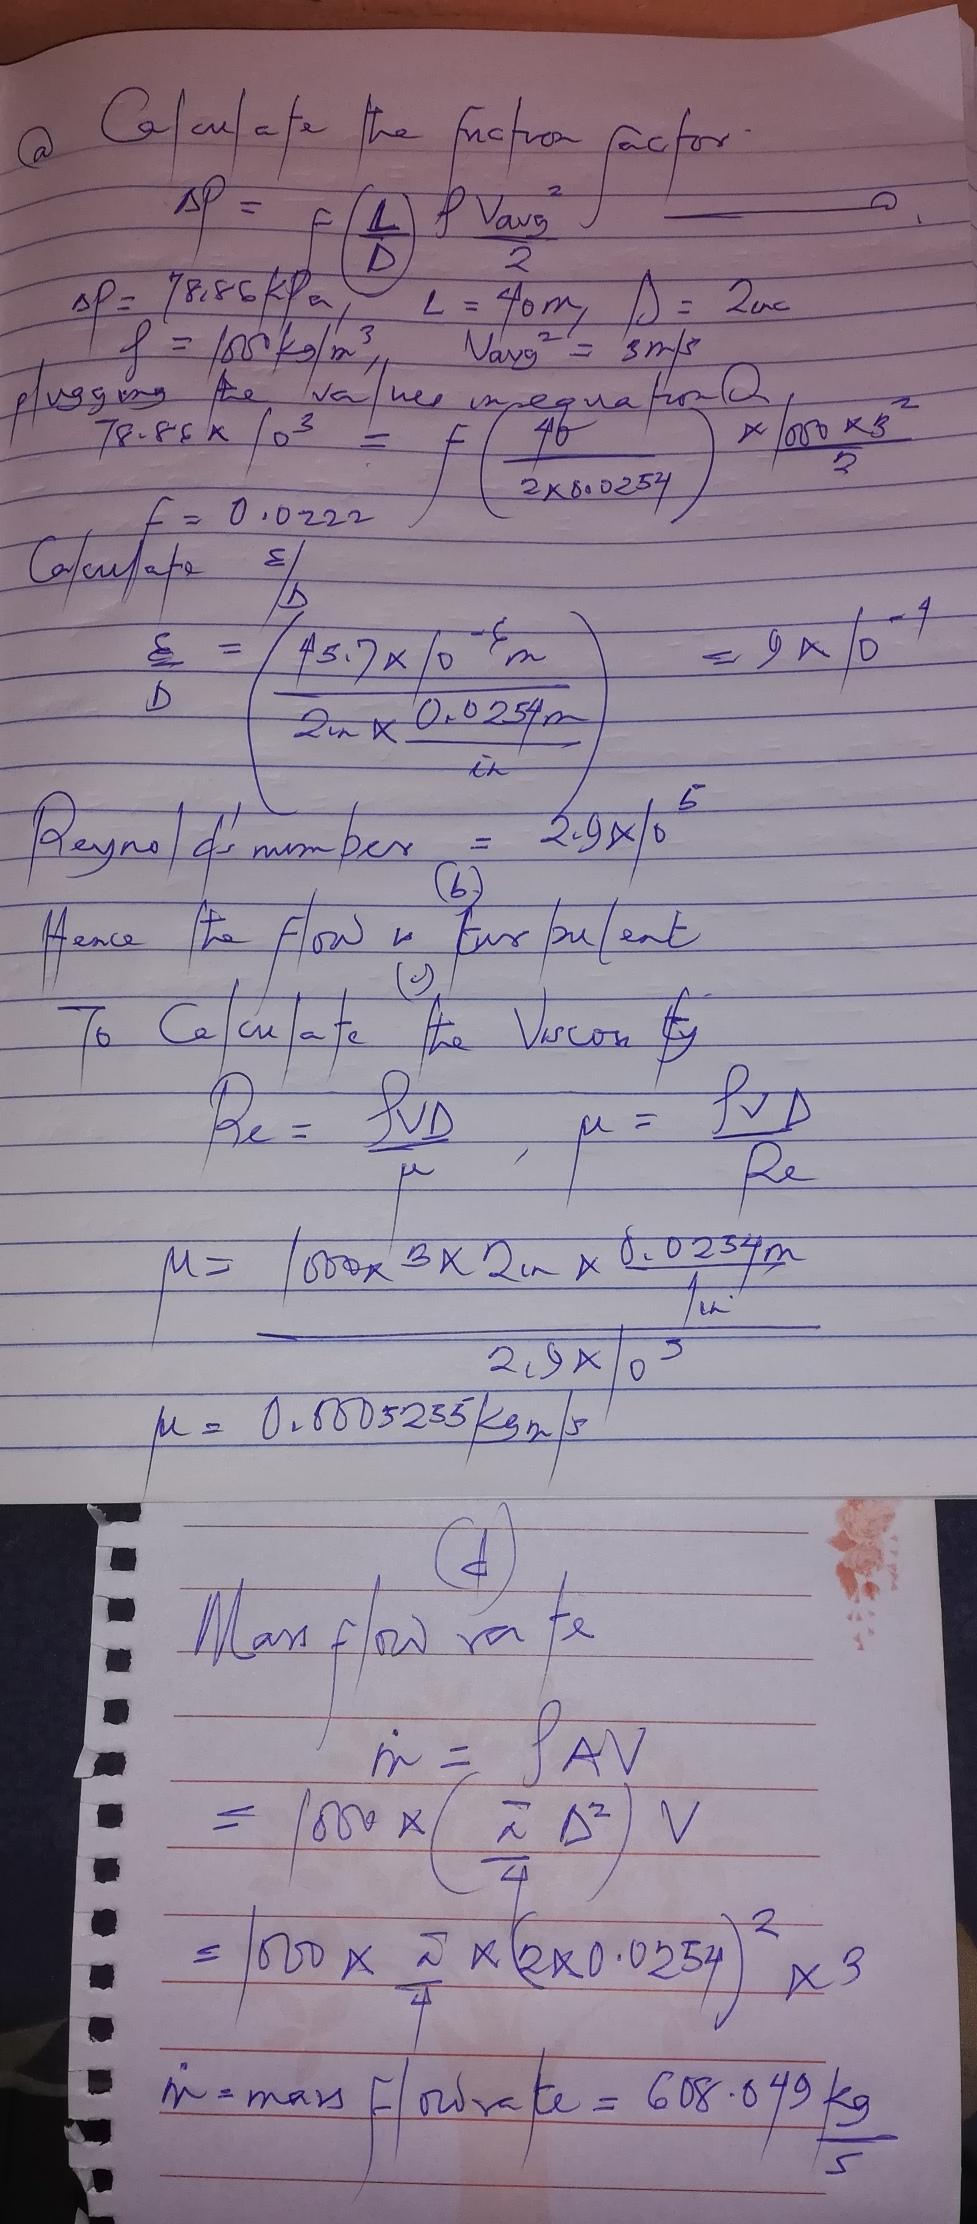 (a) Calculate the friction factor.
ΔP = F (L/D) ρ Vavg²/2 ——— ①.
ΔP = 78.86 kPa, L = 40m, D = 2in
ρ = 1000 kg/m³, Vavg² = 3m/s
plugging the values in equation ①,
78.86 × 10³ = f (40 / 2×0.0254) × 1000 × 3² / 2
f = 0.0222
Calculate ε/D
ε/D = (45.7 × 10⁻⁶ m / 2in × 0.0254m/in) = 9 × 10⁻⁴
Reynold's number = 2.9×10⁵
(b)
Hence the flow is turbulent
(c)
To Calculate the Viscosity
Re = ρVD/μ, μ = ρVD/Re
μ = 1000 × 3 × 2in × 0.0254m/1in / 2.9×10⁵
μ = 0.0005255 kgm/s
(d)
Mass flow rate
ṁ = ρAV
= 1000 × (π/4 D²) V
= 1000 × π/4 × (2×0.0254)² × 3
ṁ = mass flow rate = 608.049 kg/s